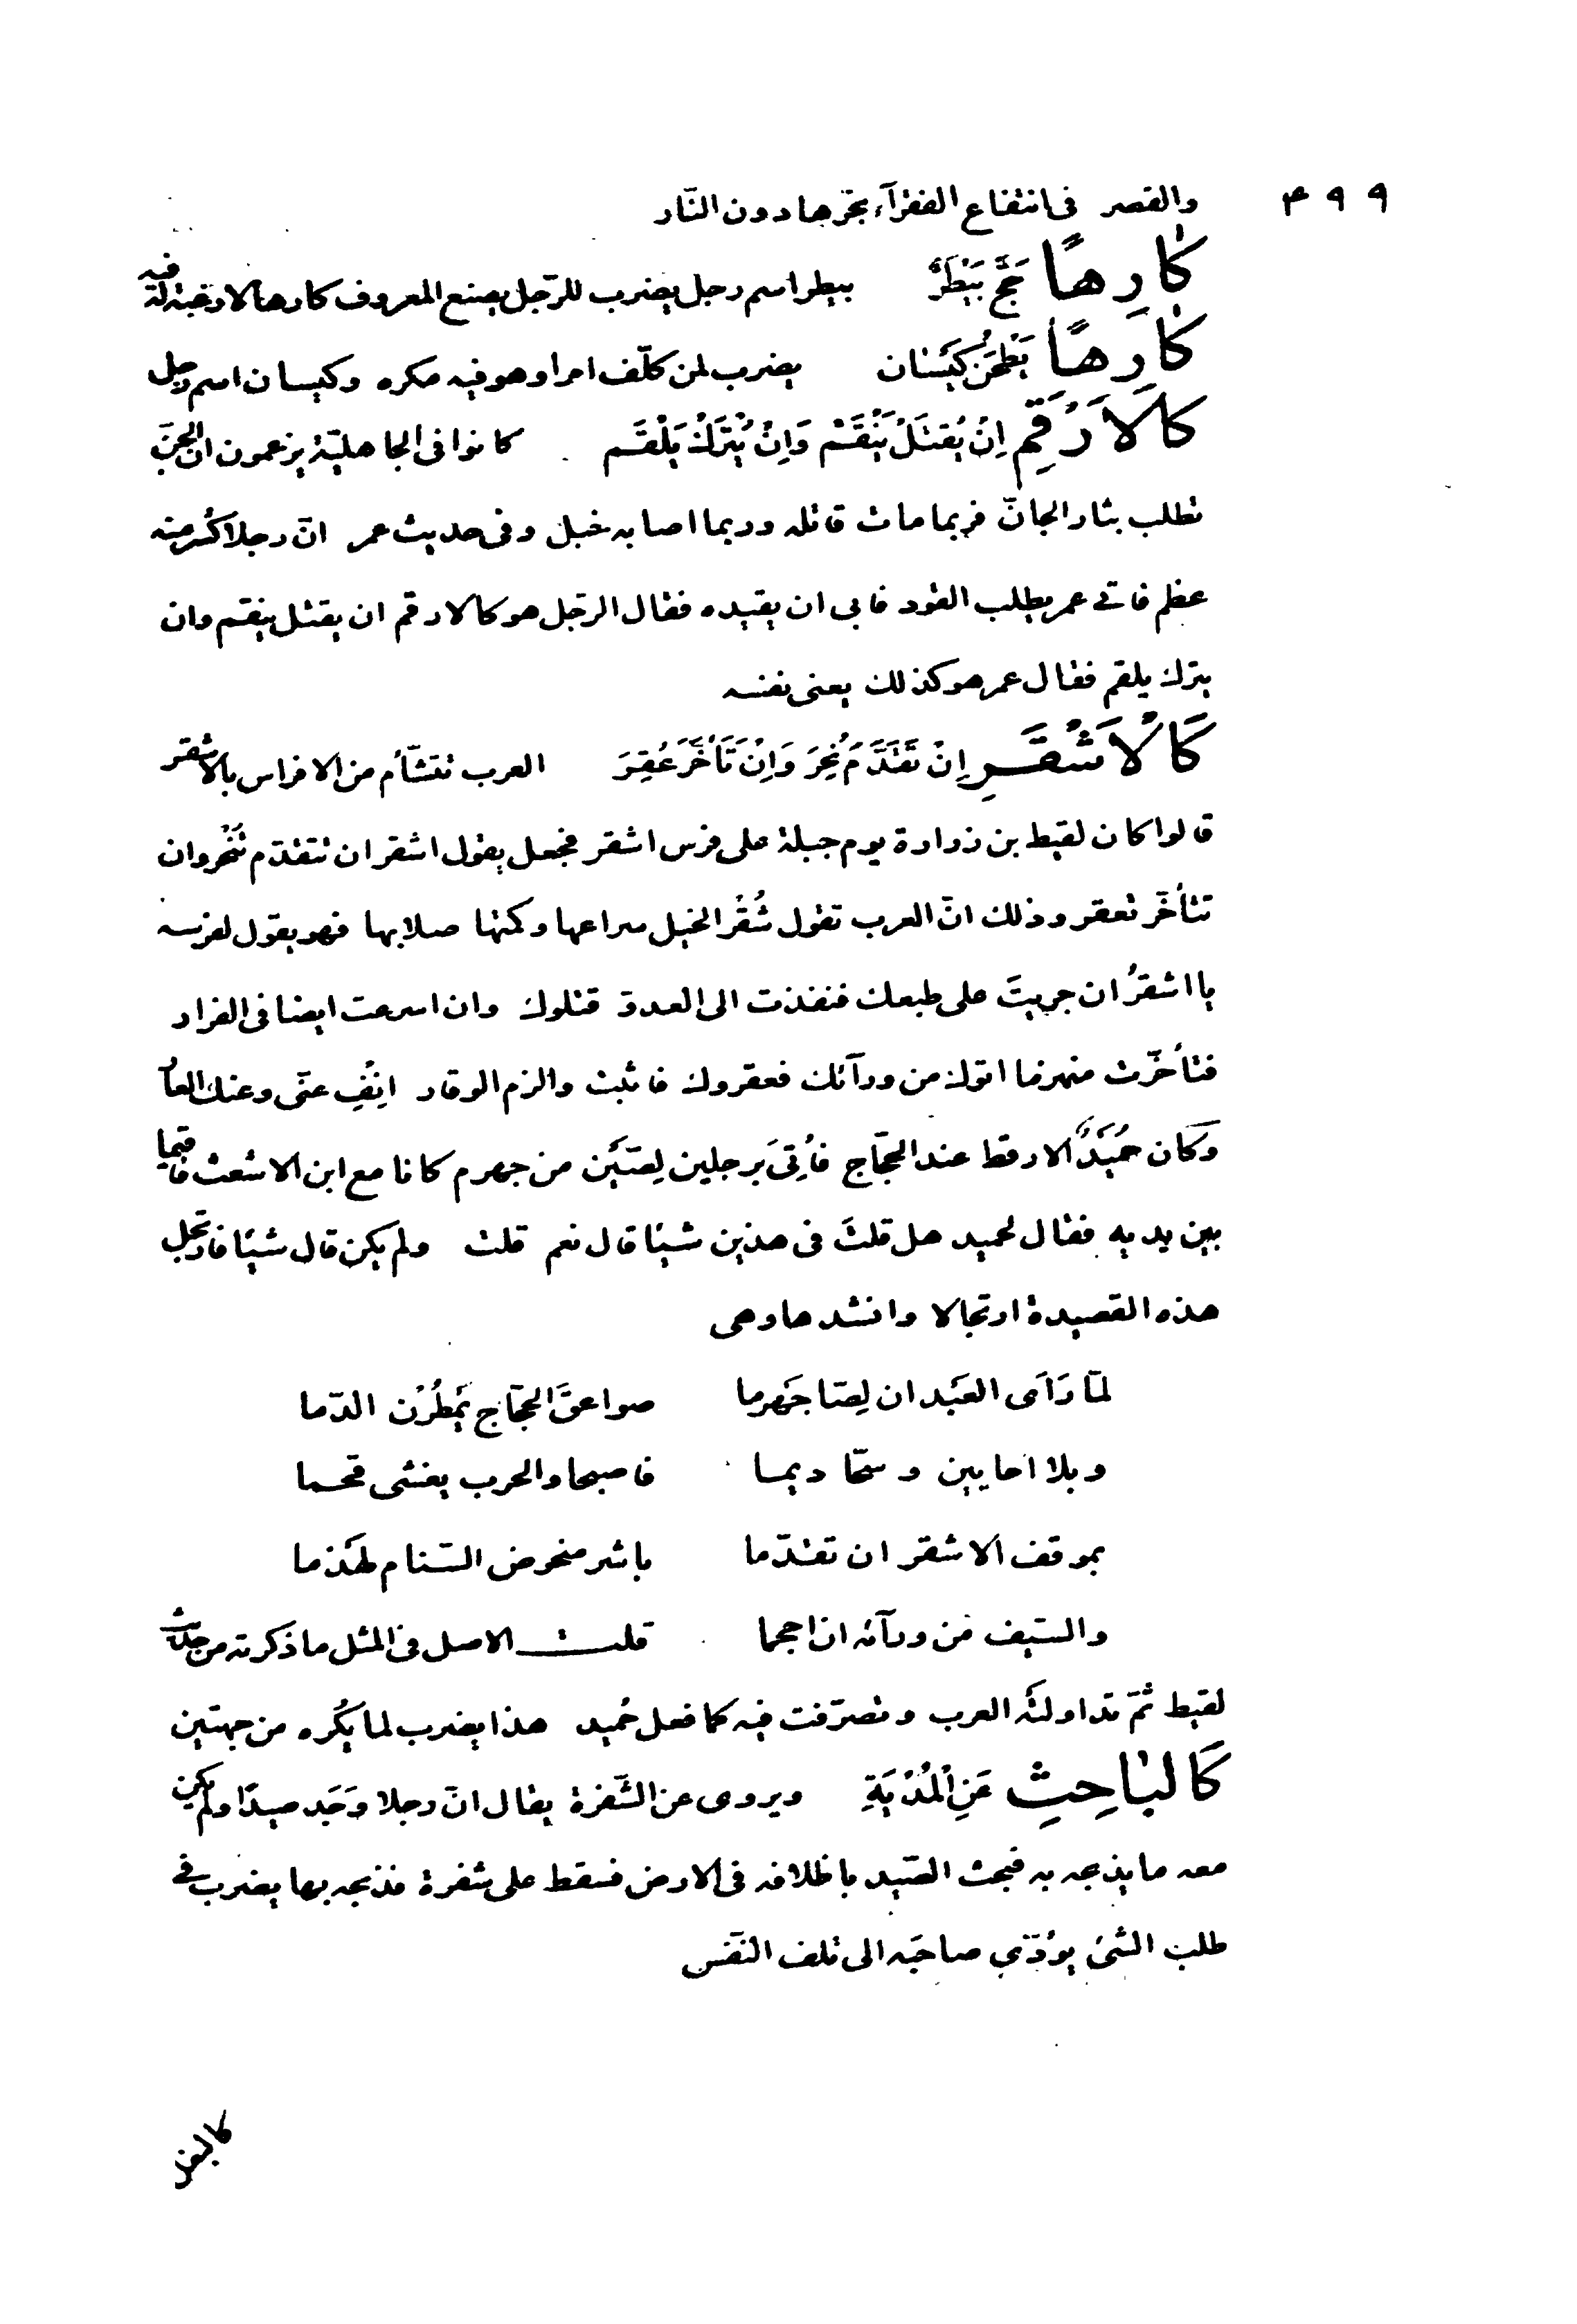 ٤٩٩
والقصر فى انتفاع الفقرآء بحرّها دون النّار
كارِهًا حَجَّ بَيْطَرٌ بيطر اسم رجل يضرب للرّجل يصنع المعروف كارها لا رغبة له فيه
كارِهًا يَطْحَنُ كَيْسان يضرب لمن كلّف امرا وهو فيه مكره وكيسان اسم رجل
كالاَرْقَمِ اِنْ يُقتَلْ يَنْقَمْ وَاِنْ يُتْرَكْ يَلْقَم كانوا فى الجاهليّة يزعمون انّ الجنّ
تطلب بثار الجانّ فربما مات قاتله وربما اصابه خبل وفى حديث عمر انّ رجلا كُسر منه
عظم فاتى عمر يطلب القود فابى ان يقيده فقال الرجل هو كالارقم ان يقتل ينقم وان
يترك يلقم فقال عمر هو كذلك يعنى نفسه
كَالْاَشْقَرِ اِنْ تَقَدَّمَ نُحِرَ وَاِنْ تَأَخَّرَ عُقِرَ العرب تتشّأم من الافراس بالاشقر
قالوا كان لقيط بن زرارة يوم جبلة على فرس اشقر فجعل يقول اشقر ان تتقدّم تُنْحر وان
تتأخّر تعقر وذلك انّ العرب تقول شُقْر الخيل سراعها وكمتها صلابها فهو يقول لفرسه
يا اشقرُ ان جريتَ على طبعك فنفذت الى العدوّ قتلوك وان اسرعت ايضا فى الفرار
فتأخّرت منهزما اتوك من ورآئك فعقروك فاثبت والزم الوقار انفِ عنّى وعنك العار
وكان حُمَيْدٌ الارقط عند الحجّاج فأُتِىَ برجلين لِصّيْن من جهرم كانا مع ابن الاشعث فاقيما
بين يديه فقال لحميد هل قلتَ فى هذين شيئا قال نعم قلت ولم يكن قال شيئا فارتجل
هذه القصيدة ارتجالا وانشدها وهى
لمّا رَاَى العَبْدان لِصّا جَهْرما صواعقَ الحجّاج يَمْطُرْن الدّما
وبلا احايين وسحّا ديما فاصبحا والحرب يغشى قحما
بموقف الاشقر ان تقدّما باشر منحوض السّنام لهذما
والسّيف من ورآئه ان احجما قلت الاصل فى المثل ما ذكرته من حديث
لقيط ثمّ تداولتْه العرب وتصرّفت فيه كما فعل حُميد هذا يضرب لما يُكْره من جهتين
كَالباحِثِ عَنِ الْمُدْيَةِ ويروى عن الشّفرة يقال انّ رجلا وَجَد صيدًا ولم يكن
معه ما يذبحه به فبحث الصّيد باظلافه فى الارض فسقط على شفرة فذبحه بها يضرب فى
طلب الشىْ يؤدّي صاحبَه الى تلف النّفس